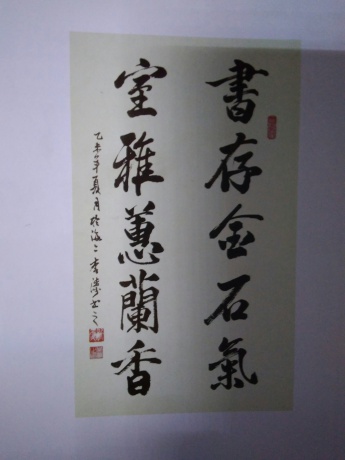 書存金石氣
室雅蕙蘭香
乙未年夏月於海